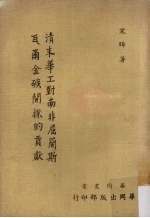 宋晞著
清末華工對南非屈蘭斯
瓦爾金礦開採的貢獻